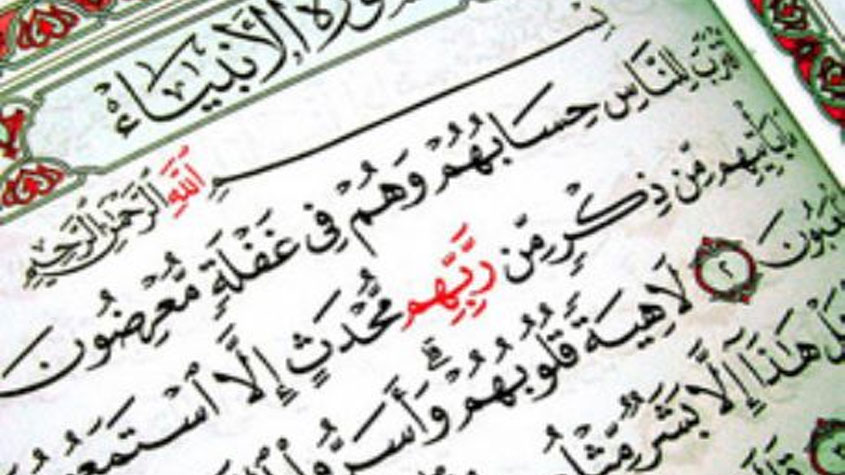 سُورَةُ الْأَنْبِيَاءِ
بِسْمِ اللَّهِ الرَّحْمَٰنِ الرَّحِيمِ
ٱقْتَرَبَ لِلنَّاسِ حِسَابُهُمْ وَهُمْ فِي غَفْلَةٍ مُّعْرِضُونَ
يَأْتِيهِم مِّن ذِكْرٍ مِّن رَّبِّهِم مُّحْدَثٍ إِلَّا ٱسْتَمَعُوهُ
يَلْعَبُونَ ٢ لَاهِيَةً قُلُوبُهُمْ ۗ وَأَسَرُّوا۟
هَلْ هَٰذَآ إِلَّا بَشَرٌ مِّثْلُكُمْ